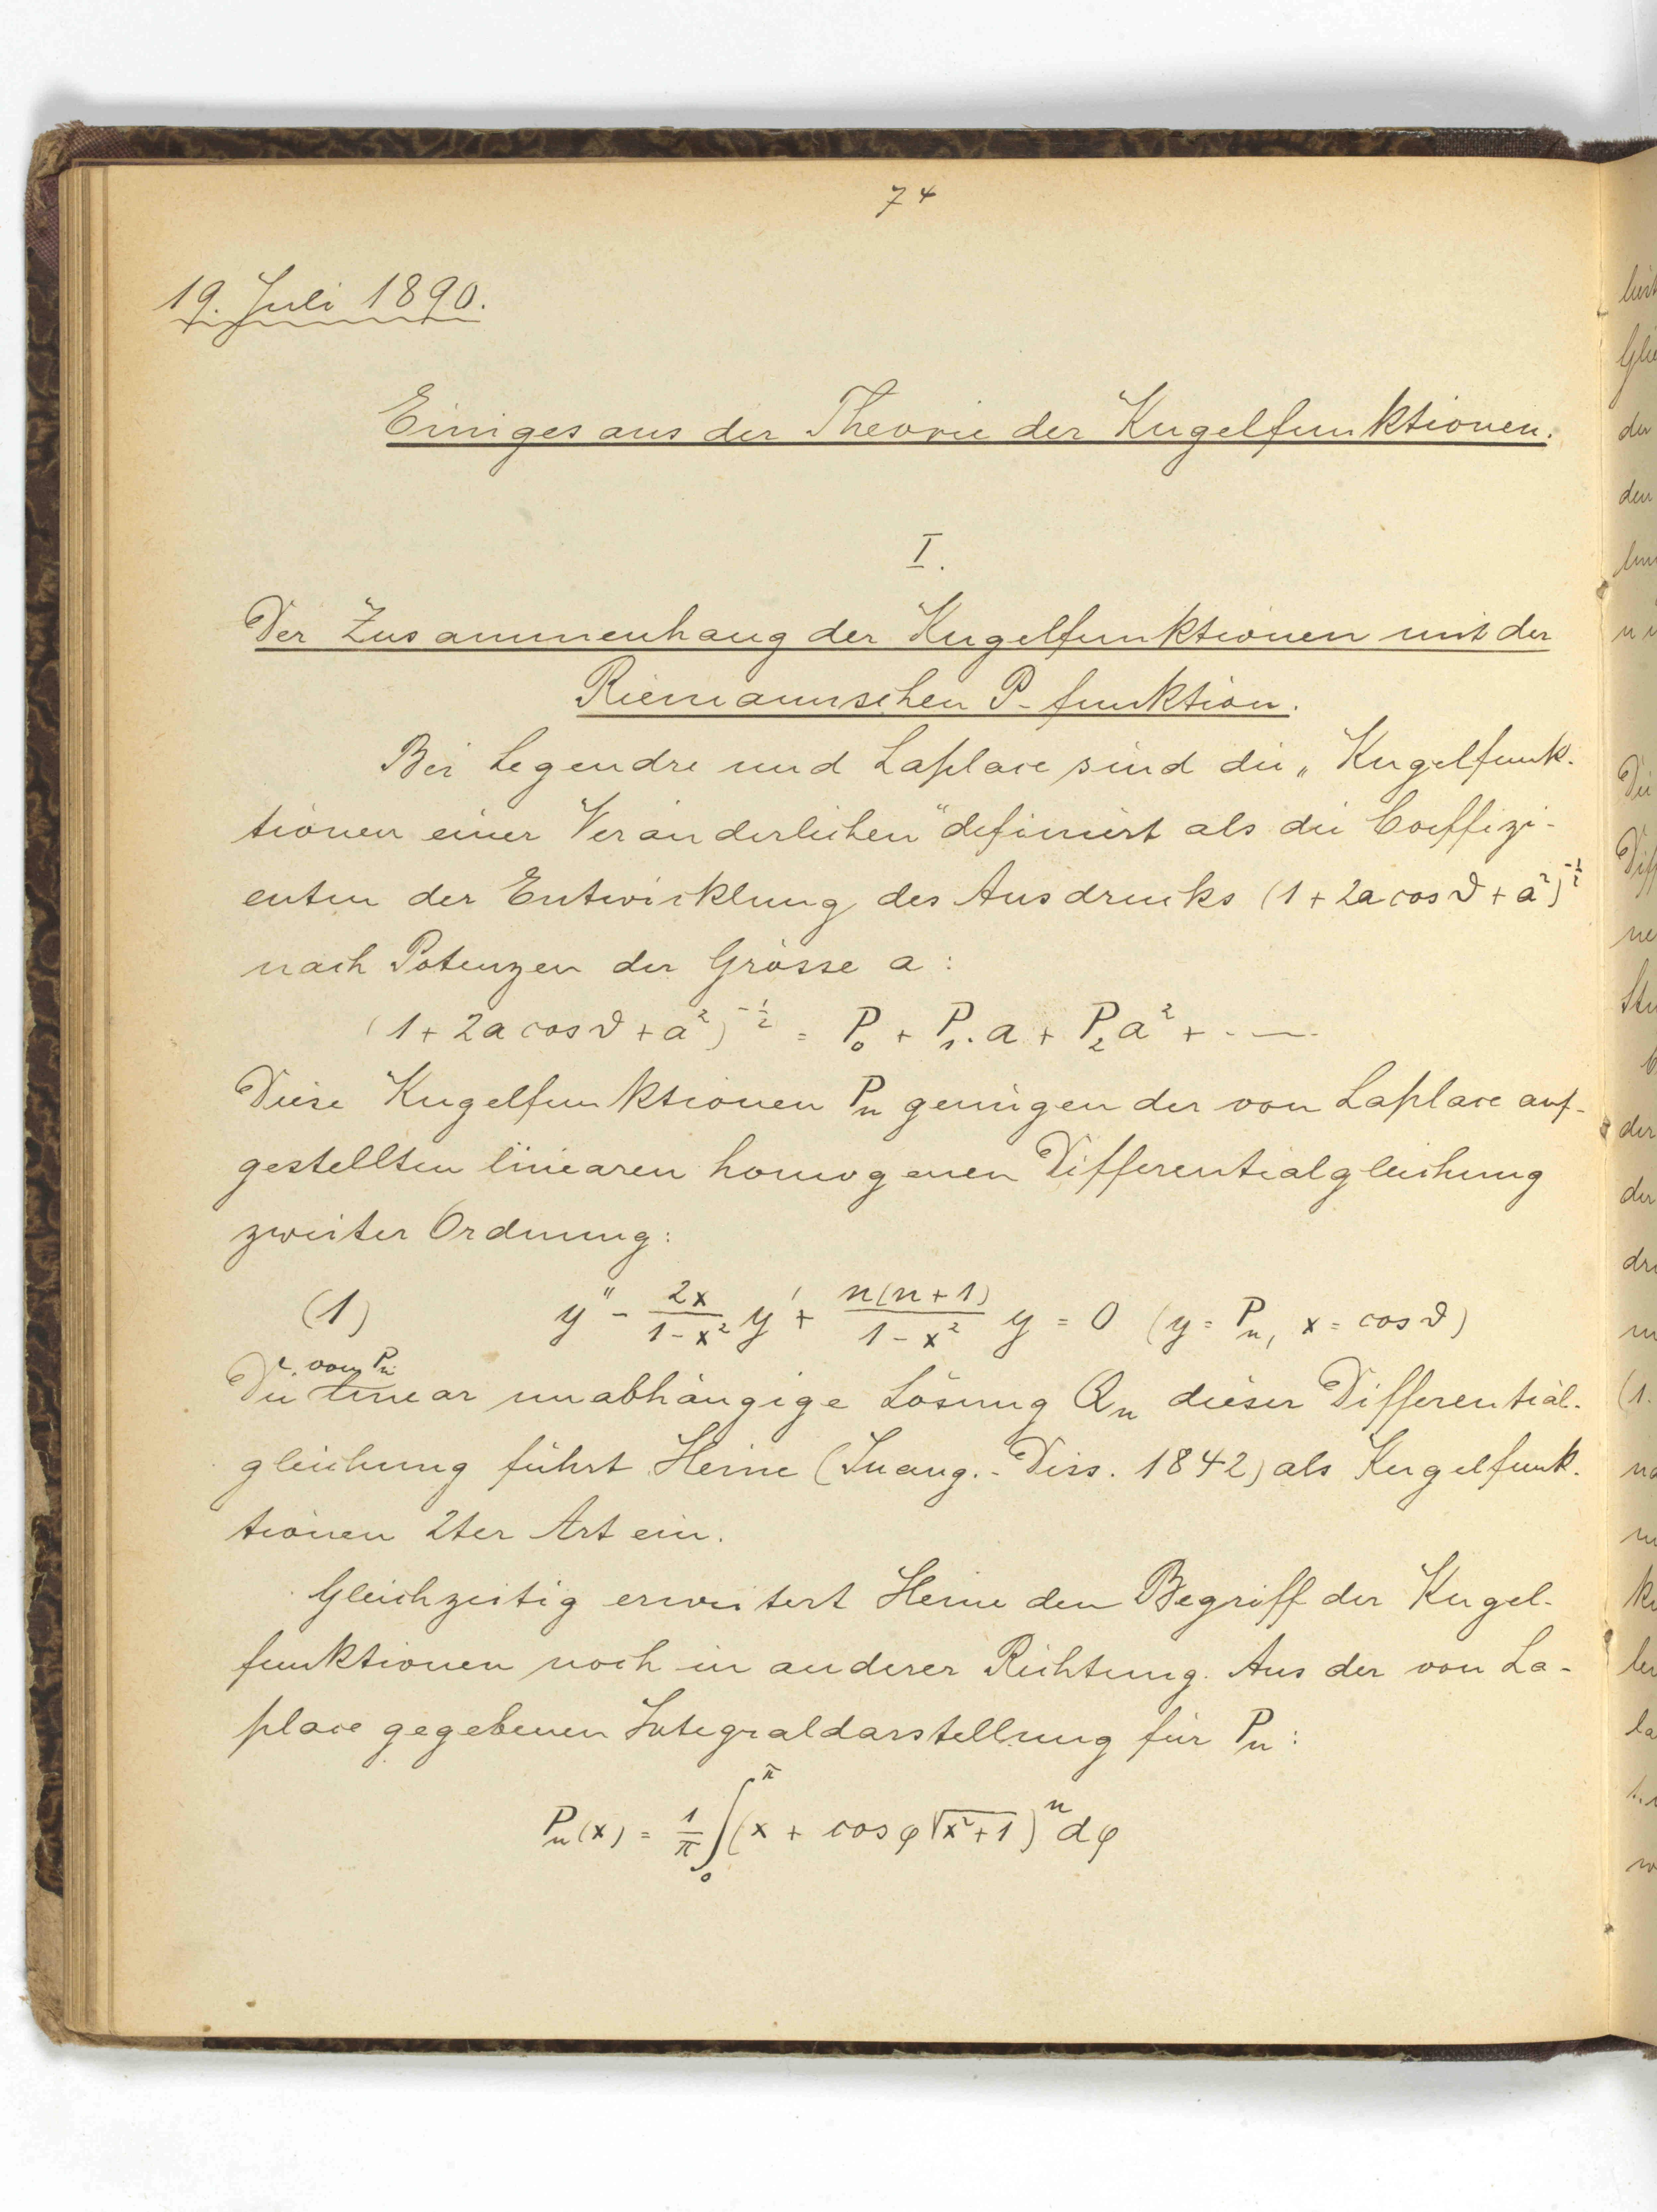 74
19. Juli 1890.
Einiges aus der Theorie der Kugelfunktionen.
I.
Der Zusammenhang der Kugelfunktionen mit der
Riemannschen P-funktion.
Bei Legendre und Laplace sind die „Kugelfunk-
tionen einer Veränderlichen“ definiert als die Coeffizi-
enten der Entwicklung des Ausdrucks (1 + 2a cos ϑ + a²)^{-1/2}
nach Potenzen der Grösse a:
(1 + 2a cos ϑ + a²)^{-1/2} = P₀ + P₁. a + P₂ a² + . — .
Diese Kugelfunktionen Pₙ genügen der von Laplace auf-
gestellten linearen homogenen Differentialgleichung
zweiter Ordnung:
(1) y'' - \frac{2x}{1-x²} y' + \frac{n(n+1)}{1-x²} y = 0 (y = Pₙ, x = cos ϑ)
von Pₙ
Die linear unabhängige Lösung Qₙ dieser Differential-
gleichung führt Heine (Inaug.-Diss. 1842) als Kugelfunk-
tionen 2ter Art ein.
Gleichzeitig erweitert Heine den Begriff der Kugel-
funktionen noch in anderer Richtung. Aus der von La-
place gegebenen Integraldarstellung für Pₙ:
Pₙ(x) = \frac{1}{π} ∫₀^π (x + cos φ √(x²+1))ⁿ dφ